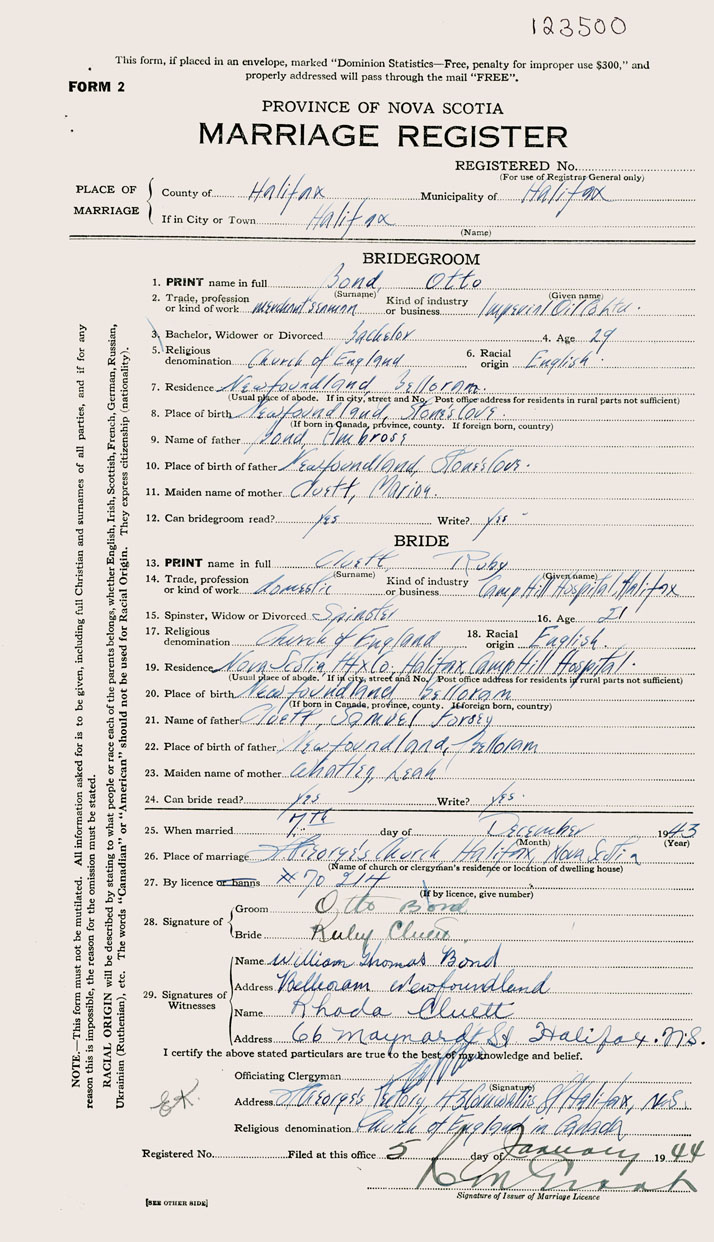 123500
This form, if placed in an envelope, marked "Dominion Statistics—Free, penalty for improper use $300," and
properly addressed will pass through the mail "FREE".
FORM 2
PROVINCE OF NOVA SCOTIA
MARRIAGE REGISTER
REGISTERED No.
(For use of Registrar General only)
PLACE OF MARRIAGE
County of Halifax Municipality of Halifax
If in City or Town Halifax
(Name)
BRIDEGROOM
1. PRINT name in full Bond, Otto
(Surname) (Given name)
2. Trade, profession or kind of work merchant seaman Kind of industry or business Imperial Oil
3. Bachelor, Widower or Divorced Bachelor 4. Age 29
5. Religious denomination Church of England 6. Racial origin English.
7. Residence Newfoundland, Belloram.
(Usual place of abode. If in city, street and No. Post office address for residents in rural parts not sufficient)
8. Place of birth Newfoundland, Stoneslove.
(If born in Canada, province, county. If foreign born, country)
9. Name of father Bond, Ambrose
10. Place of birth of father Newfoundland, Stoneslove.
11. Maiden name of mother Cluett, Marion.
12. Can bridegroom read? yes Write? yes
BRIDE
13. PRINT name in full Cluett Ruby
(Surname) (Given name)
14. Trade, profession or kind of work domestic Kind of industry or business Camp Hill Hospital, Halifax
15. Spinster, Widow or Divorced Spinster 16. Age 21
17. Religious denomination Church of England 18. Racial origin English.
19. Residence Nova Scotia Hfx Co. Halifax Camp Hill Hospital.
(Usual place of abode. If in city, street and No. Post office address for residents in rural parts not sufficient)
20. Place of birth Newfoundland Belloram
(If born in Canada, province, county. If foreign born, country)
21. Name of father Cluett, Samuel Forsey
22. Place of birth of father Newfoundland, Belloram
23. Maiden name of mother Whatley, Leah
24. Can bride read? yes Write? yes.
25. When married 7th day of December 1943
(Month) (Year)
26. Place of marriage St George's Church Halifax, Nova Scotia
(Name of church or clergyman's residence or location of dwelling house)
27. By licence or banns # 70 214
(If by licence, give number)
28. Signature of
Groom Otto Bond
Bride Ruby Cluett
29. Signatures of Witnesses
Name William Thomas Bond
Address Belleoram Newfoundland
Name Rhoda Cluett
Address 66 Maynard St Halifax. N.S.
I certify the above stated particulars are true to the best of my knowledge and belief.
Officiating Clergyman
(Signature)
Address St George's Rectory, Cornwallis St Halifax, N.S.
Religious denomination Church of England in Canada
Registered No. Filed at this office 5 day of January 1944
Signature of Issuer of Marriage Licence
[SEE OTHER SIDE]
NOTE.—This form must not be mutilated. All information asked for is to be given, including full Christian and surnames of all parties, and if for any
reason this is impossible, the reason for the omission must be stated.
RACIAL ORIGIN will be described by stating to what people or race each of the parents belongs, whether English, Irish, Scottish, French, German, Russian,
Ukrainian (Ruthenian), etc. The words "Canadian" or "American" should not be used for Racial Origin. They express citizenship (nationality).